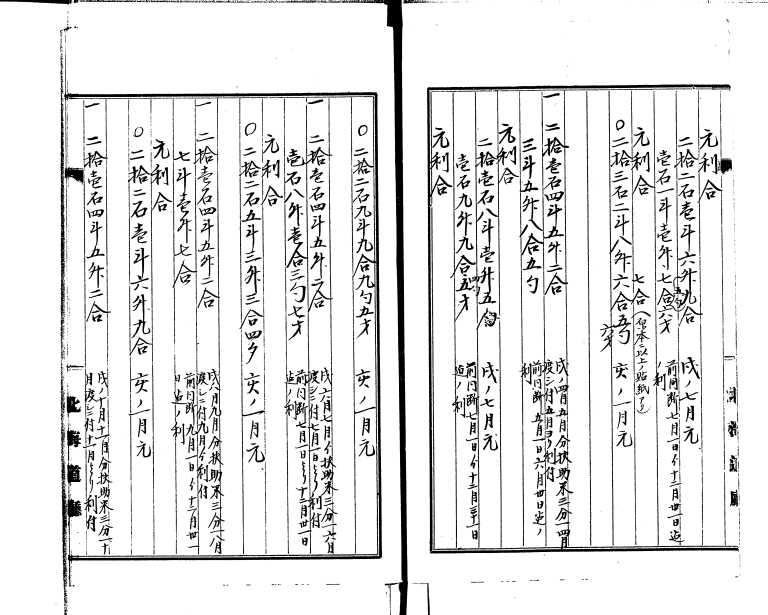 元利合
二拾二石壱斗六升九合 戌ノ七月元
壱石一斗壱升七合六才 前同断七月一日ゟ十二月卅一日迄ノ利
元利合 七合(但本ニ以上ノ貼紙アリ)
〇二拾三石二斗八升六合五勺六才 亥ノ一月元
一 二拾壱石四斗五升二合 戌ノ四月五月分扶助米三分一四月渡シニ付五月ヨリ利付
三斗五升八合五勺 前同断五月一日ゟ六月卅日迄ノ利
元利合
二拾一石八斗壱升五合 戌ノ七月元
壱石九升九合五才 前同断七月一日ゟ十二月三十一日迄ノ利
元利合
〇二拾二石九斗九合九勺五才 亥ノ一月元
一 二拾壱石四斗五升二合 戌六月七月分扶助米三分一六月渡シニ付七月一日ゟ利付
壱石八升壱合三勺七才 前同断七月一日ゟ十二月卅一日迄ノ利
元利合
〇二拾二石五斗三升三合四夕 亥ノ一月元
一 二拾壱石四斗五升二合 戌八月九月分扶助米三分一八月渡シニ付九月ゟ利付
七斗壱升七合 前同断九月一日ゟ十二月卅一日迄ノ利
元利合
〇二拾二石壱斗六升九合 亥ノ一月元
一 二拾壱石四斗五升二合 戌ノ十月十一月分扶助米三分一十月渡シニ付十一月ヨリ利付
北海道庁